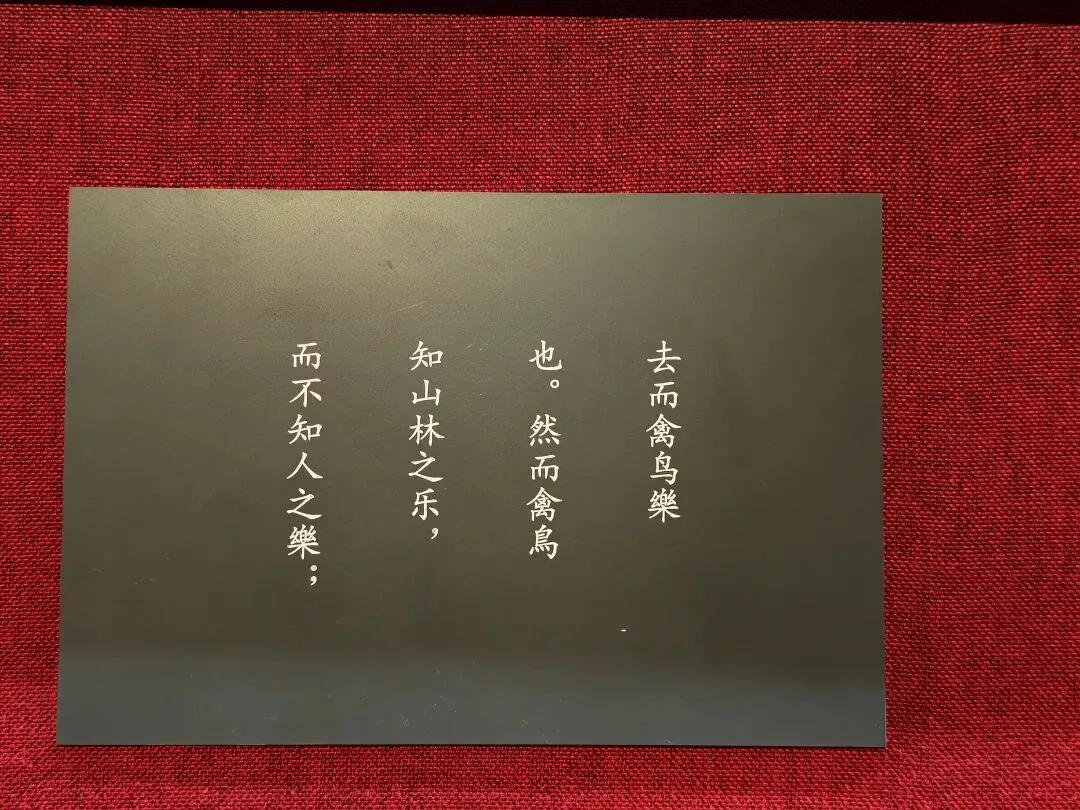 去而禽鸟樂
也。然而禽鳥
知山林之乐，
而不知人之樂；